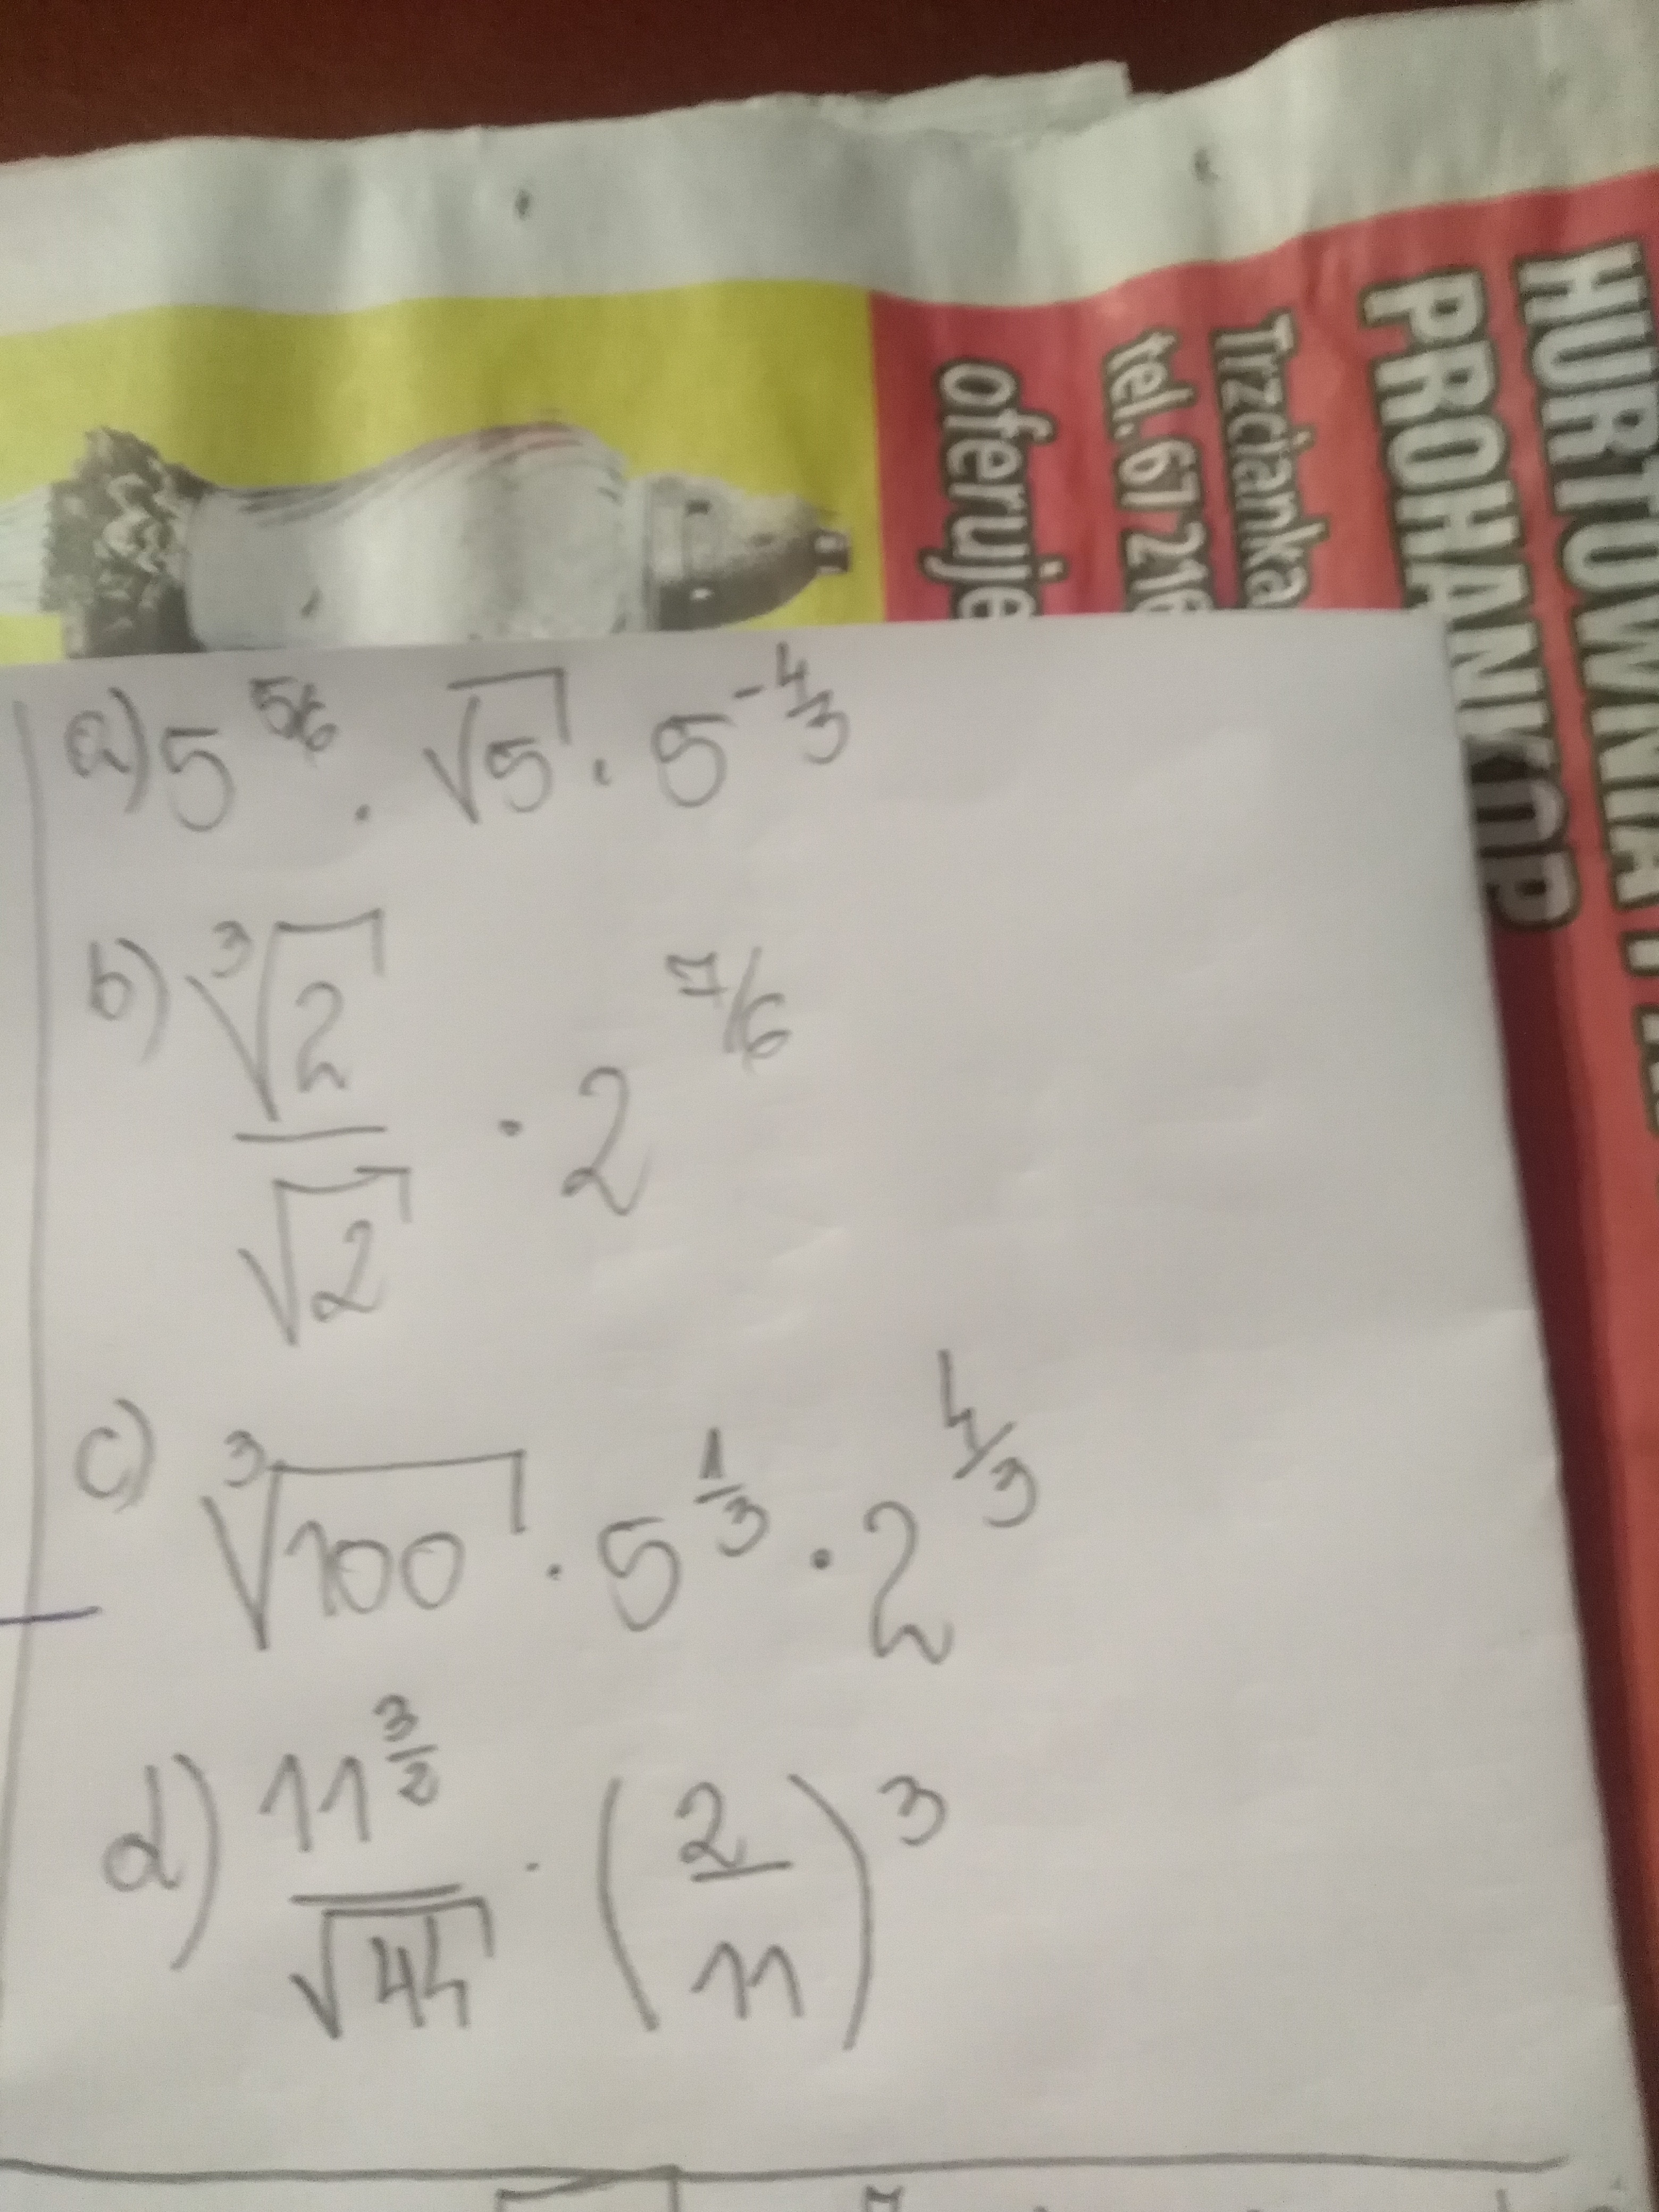 HURTOWNIA
PROHANKOP
Trzcianka
tel. 67 216
oferuje
a) 5^{5/6} · √5 · 5^{-4/3}
b) ∛2 / √2 · 2^{7/6}
c) ∛100 · 5^{1/3} · 2^{4/3}
d) 11^{3/2} / √44 · (2/11)^3